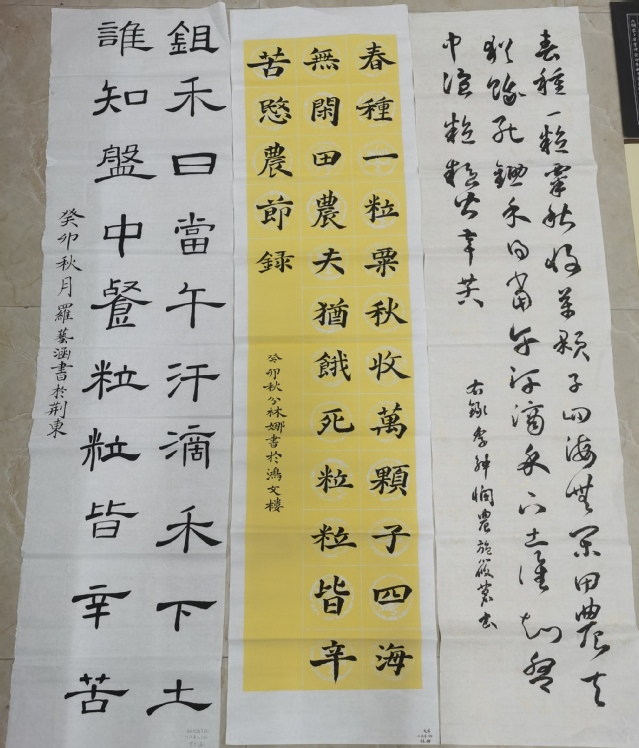 春種一粒粟秋收萬顆子四海無閑田農夫
猶餓死鋤禾日當午汗滴禾下土誰知盤
中飡粒粒皆辛苦
右錄李紳憫農施筱茗書
春種一粒粟秋收萬顆子四海
無閑田農夫猶餓死粒粒皆辛
苦愍農節録
癸卯秋分林娜書於鴻文樓
鉏禾日當午汗滴禾下土
誰知盤中餐粒粒皆辛苦
癸卯秋月羅藝涵書於荆東